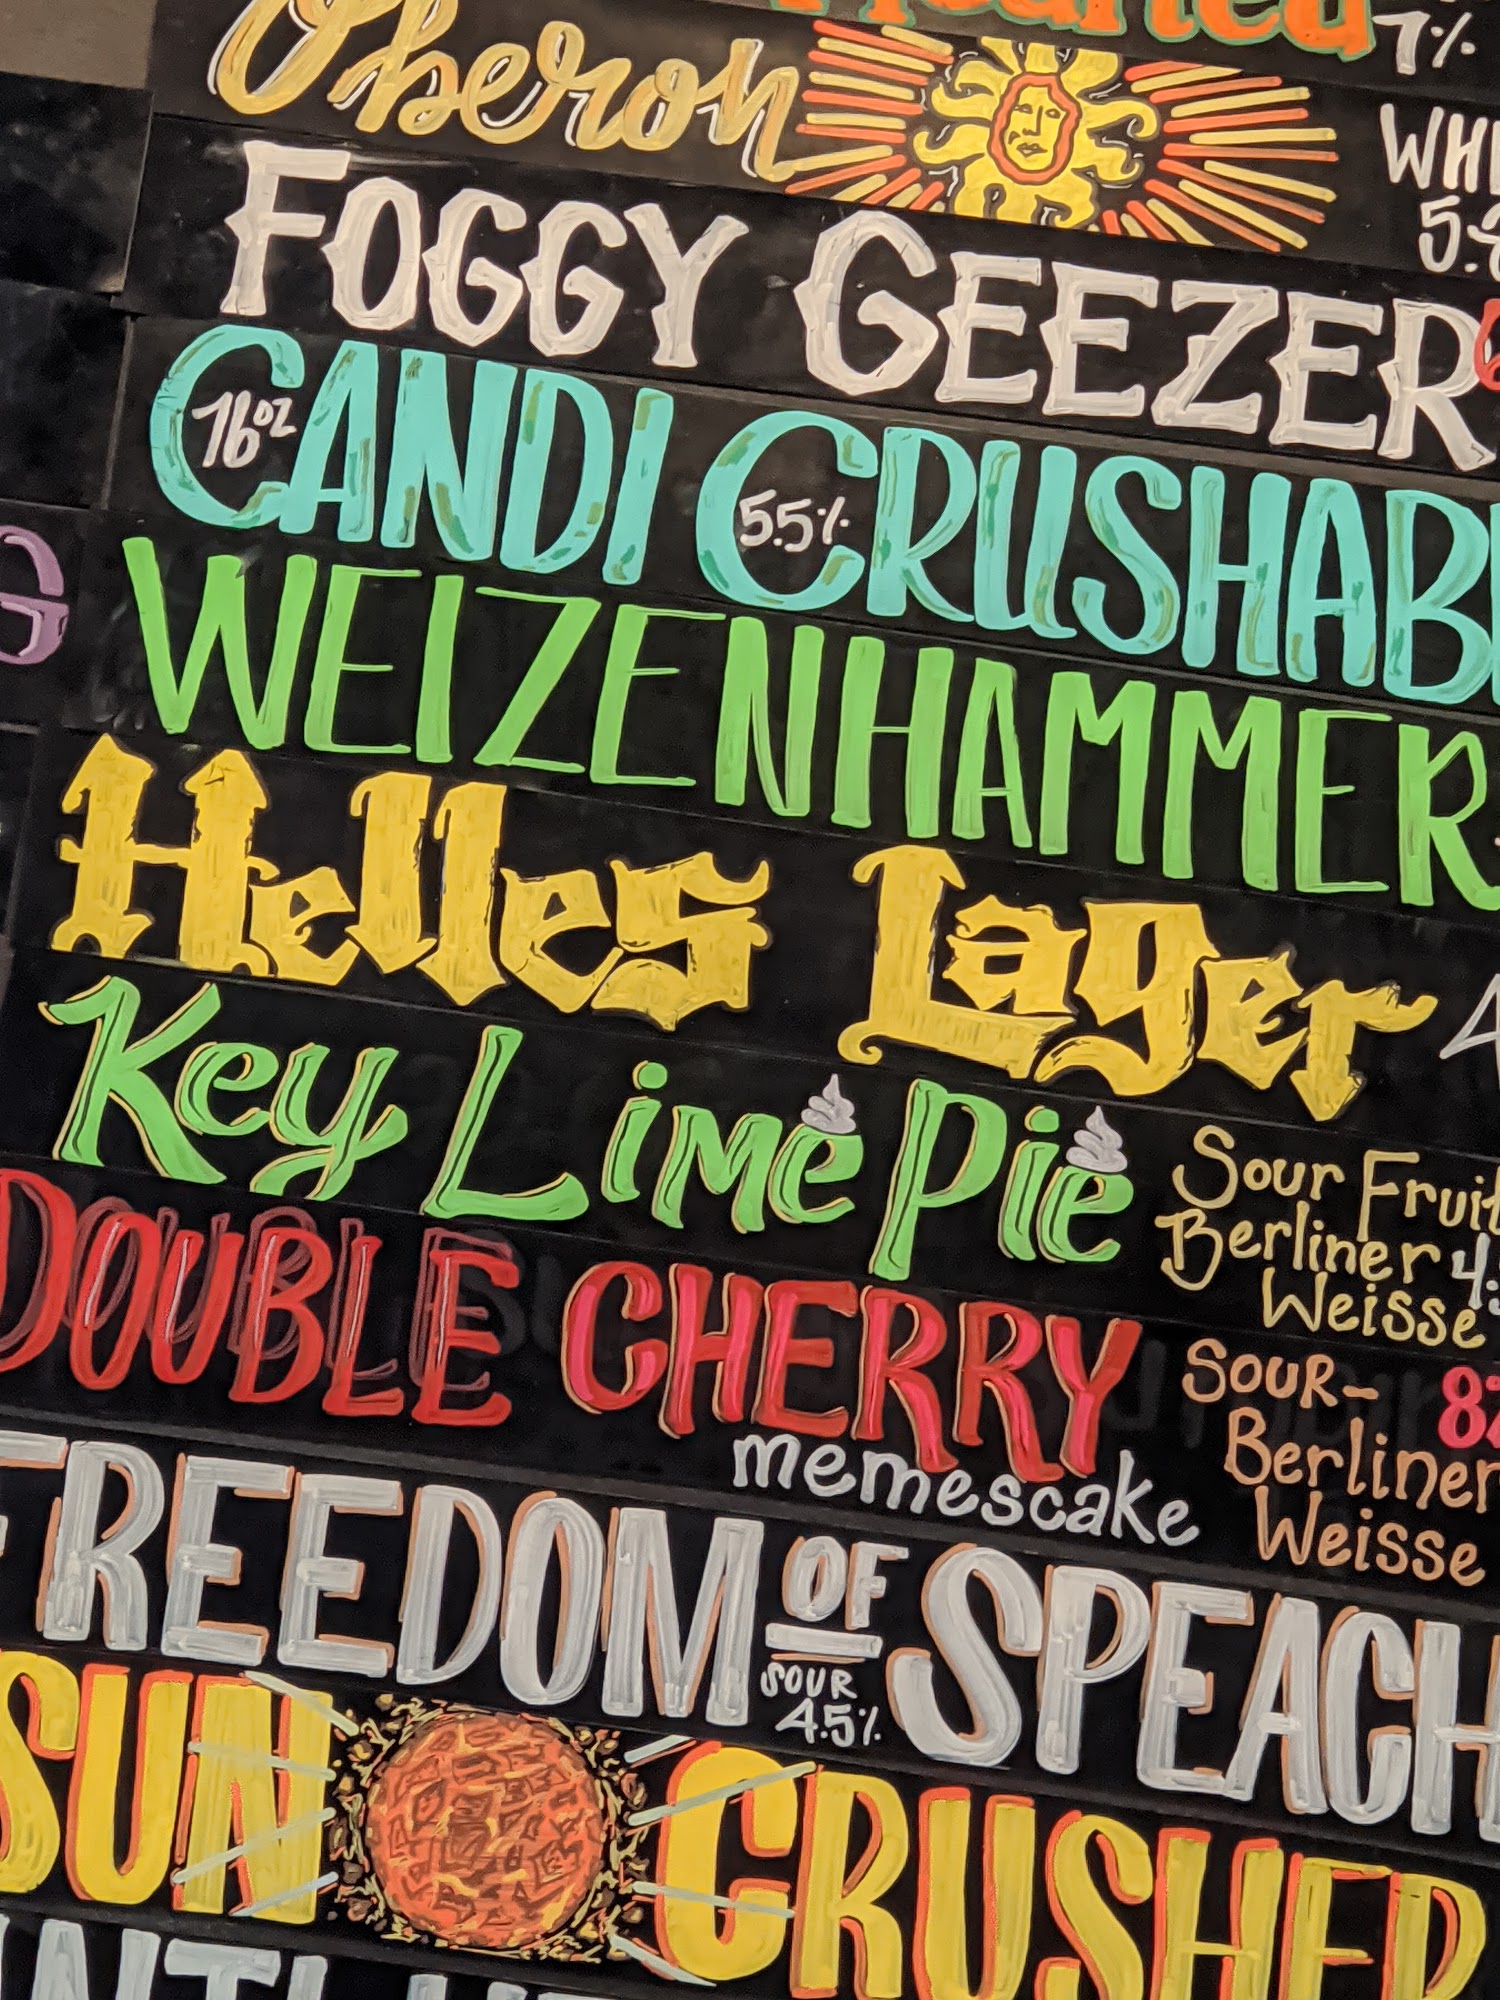 7%
Oberon
FOGGY GEEZER
CANDI CRUSHAB
16oz
5.5%
WEIZENHAMMER
Helles Lager
Key Lime Pie
Sour Fruit
Berliner
Weisse
DOUBLE CHERRY
memescake
SOUR-
Berliner
Weisse
FREEDOM OF SPEACH
SOUR
4.5%
SUN CRUSHER